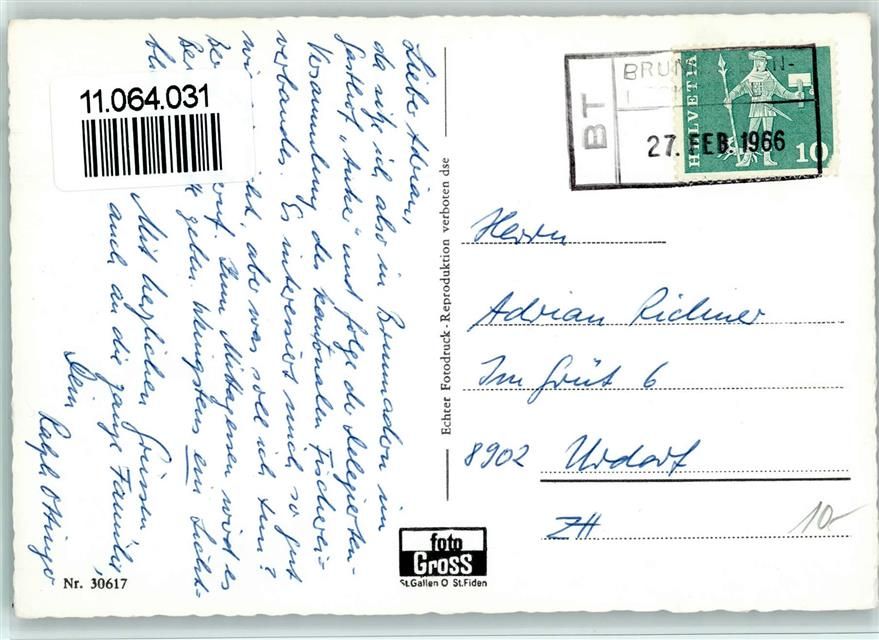 11.064.031
Liebe Adrian,
da sitze ich also in Brunnadern im
Gasthof „Anke“ und folge de Delegierten-
Versammlung des kantonalen Fischerei-
verbandes. Es interessiert mich so gut
wie, aber was soll ich tun?
Zum Mittagessen wird es
geben. Wenigstens ein Licht-
bl
Mit herzlichen Grüssen
auch an die ganze Familie,
Dein
Ralph
Nr. 30617
Echter Fotodruck - Reproduktion verboten dse
foto
Gross
St.Gallen O St.Fiden
BT
BRUN
27. FEB. 1966
HELVETIA
10
Herrn
Adrian Richner
Im Grüt 6
8902 Urdorf
ZH
10.-